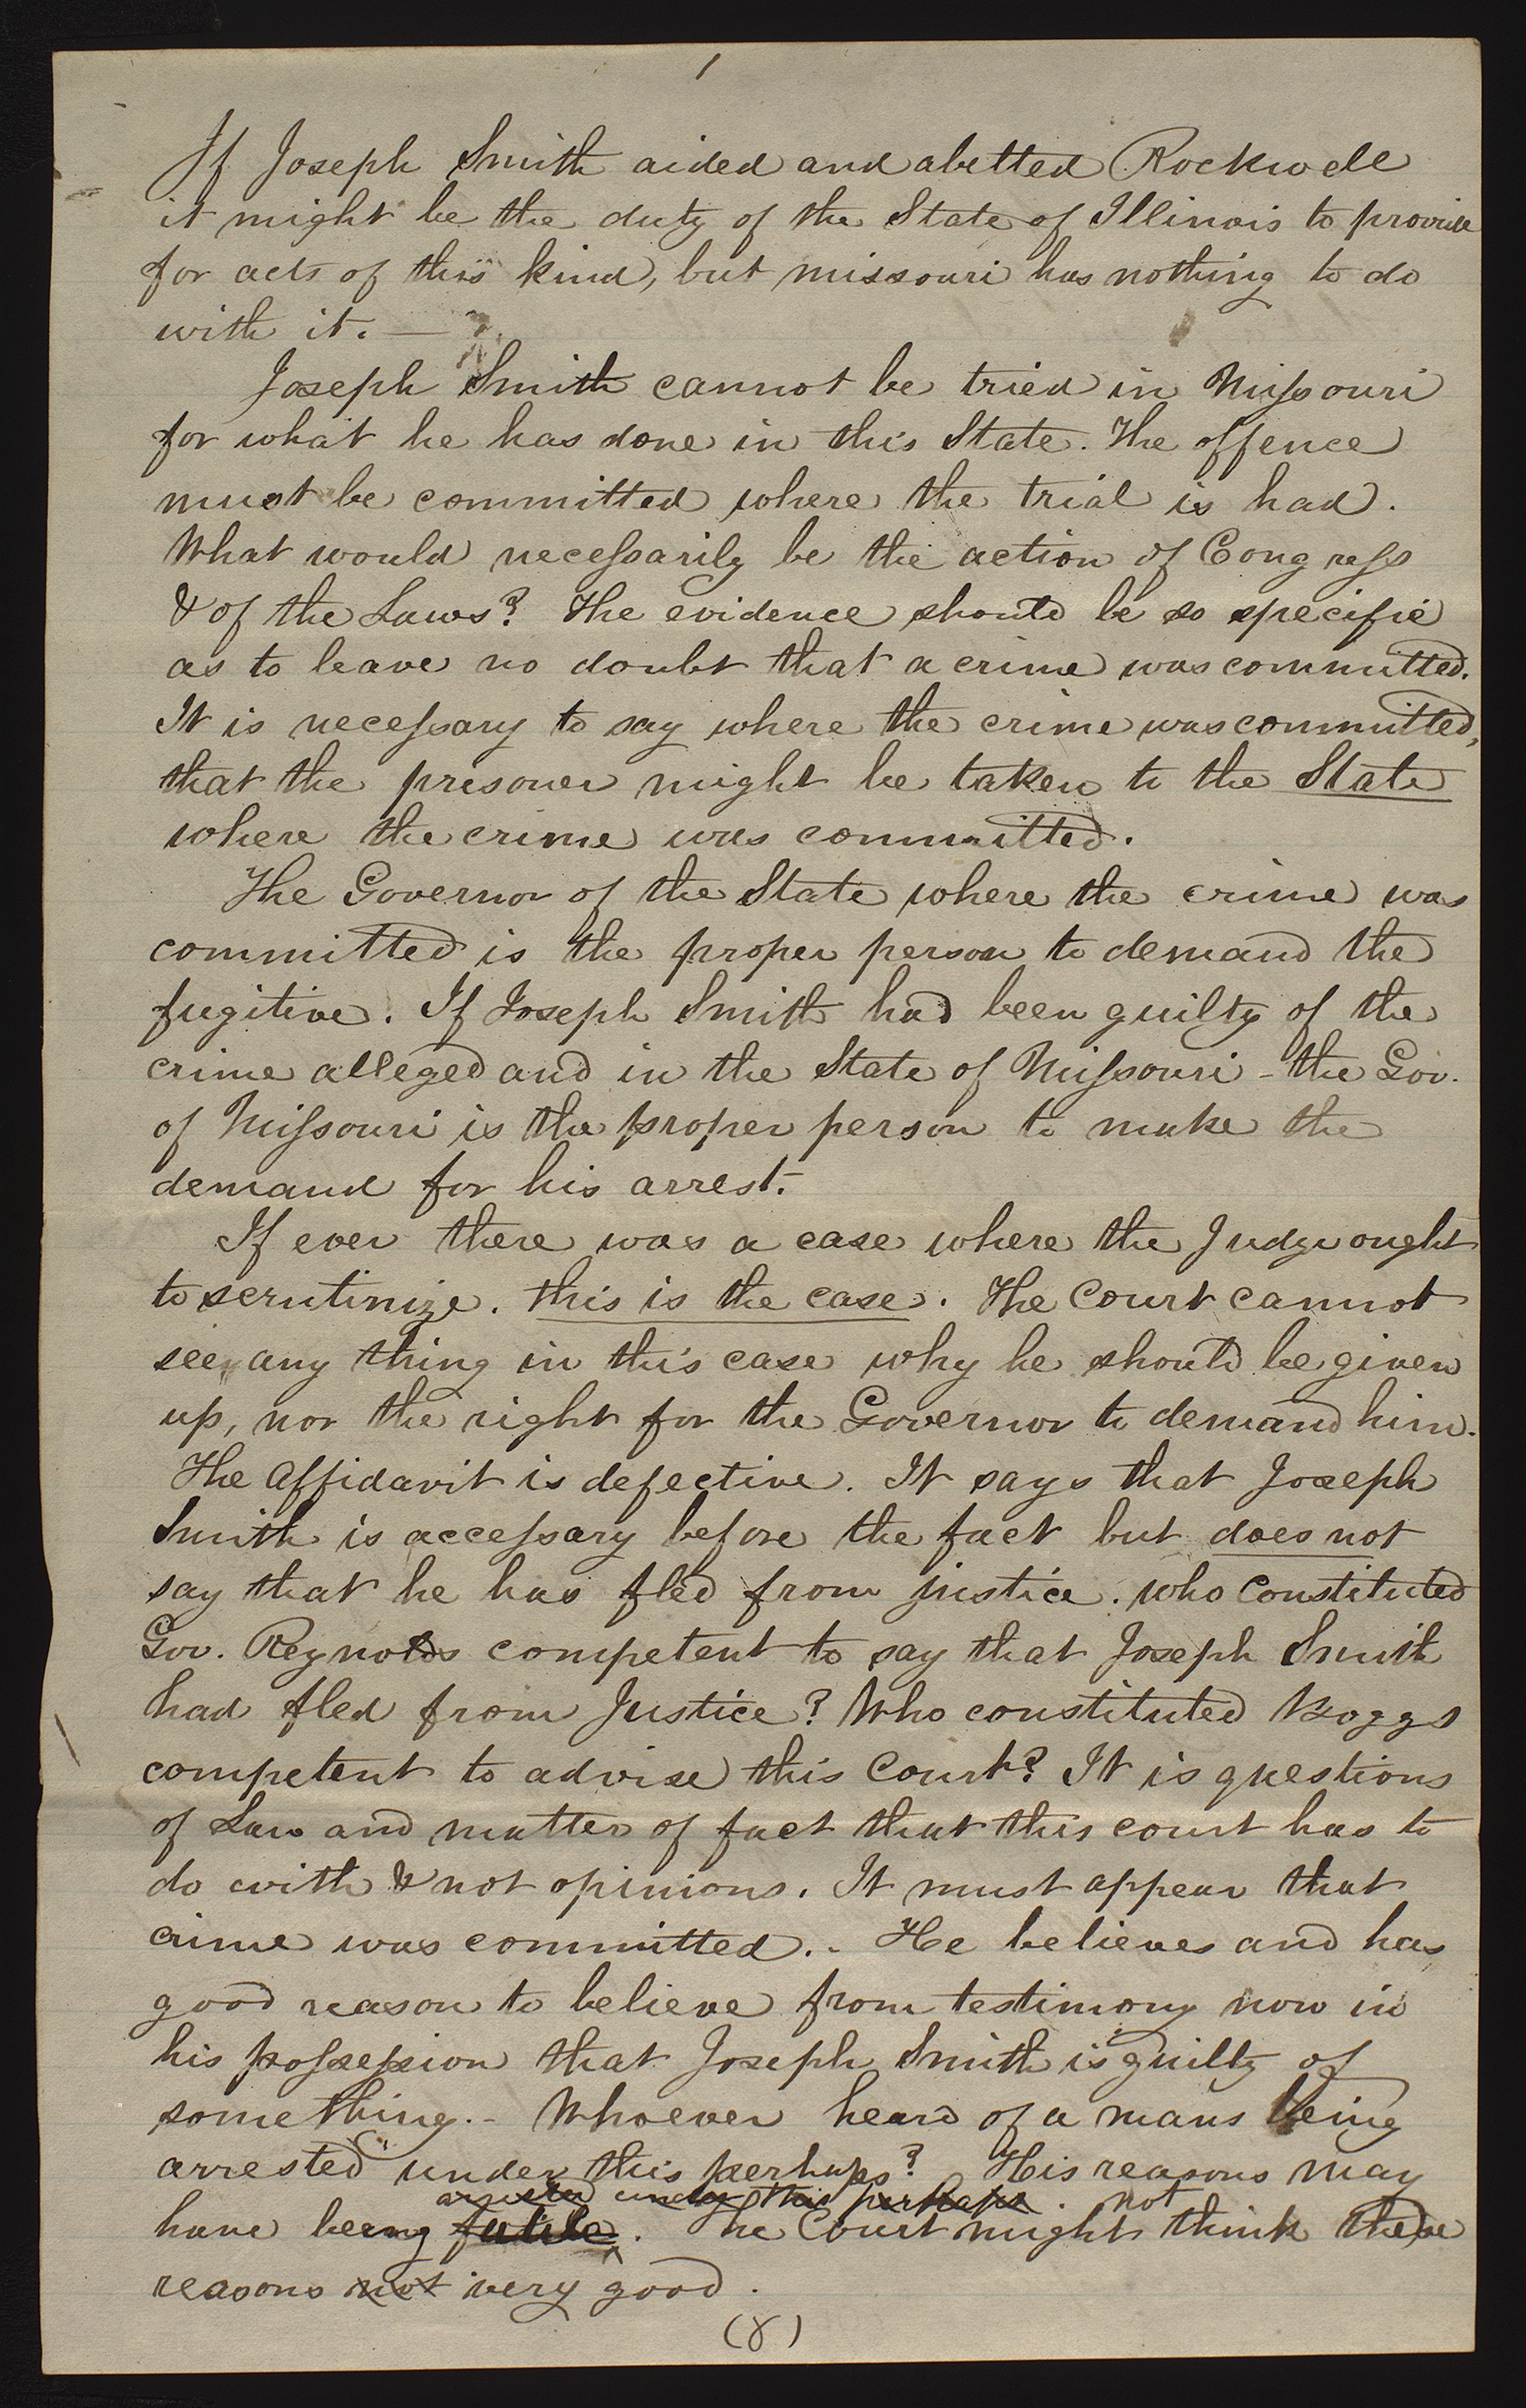 1
If Joseph Smith aided and abetted Rockwell
it might be the duty of the State of Illinois to provide
for acts of this kind, but missouri has nothing to do
with it. —
Joseph Smith cannot be tried in Missouri
for what he has done in this State. The offence
must be committed where the trial is had.
What would necessarily be the action of Congress
& of the Laws? The evidence should be so specific
as to leave no doubt that a crime was committed.
It is necessary to say where the crime was committed,
that the prisoner might be taken to the State
where the crime was committed.
The Governor of the State where the crime was
committed is the proper person to demand the
fugitive. If Joseph Smith had been guilty of the
crime alleged and in the State of Missouri – the Gov.
of Missouri is the proper person to make the
demand for his arrest.
If ever there was a case where the Judge ought
to scrutinize. this is the case. The Court cannot
see any thing in this case why he should be given
up, nor the right for the Governor to demand him.
The Affidavit is defective. It says that Joseph
Smith is accessary before the fact but does not
say that he has fled from justice. who Constituted
Gov. Reynolds competent to say that Joseph Smith
had fled from Justice? Who constituted Boggs
competent to advise this Court? It is questions
of Law and matter of fact that this court has to
do with & not opinions. It must appear that
crime was committed. - He believes and has
good reason to believe from testimony now in
his possession that Joseph Smith is guilty of
something. - Whoever heard of a mans being
arrested under this perhaps? His reasons may
arrested under this perhaps. not
have being futile. The Court might think these
reasons not very good.
(8)